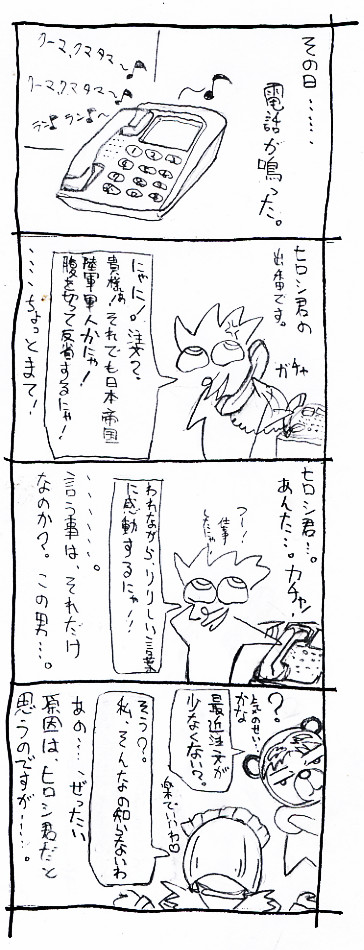 その日……、
電話が鳴った。
クーマ、クマクマ～♪
クーマ、クマクマ～♪
ラン♪ラン♪～
ヒロシ君の
出番です。
ガチャ
にゃに！注文？
貴様ぁ！それでも日本帝国
陸軍軍人かにゃ！
腹を切って反省するにゃ！
……ちょっとまて！
ヒロシ君…。
あんた…。
カチャン
フー！
仕事
したにゃ！
われながら、りりしい言葉
に感動するにゃ！！
……。
言う事は、それだけ
なのか？。この男…。
？。
気のせい
かな
最近注文が
少なくない？。
楽でいいわ♡
そう？。
私、そんなの知らないわ
あの…、ぜったい
原因は、ヒロシ君だと
思うのですが……。